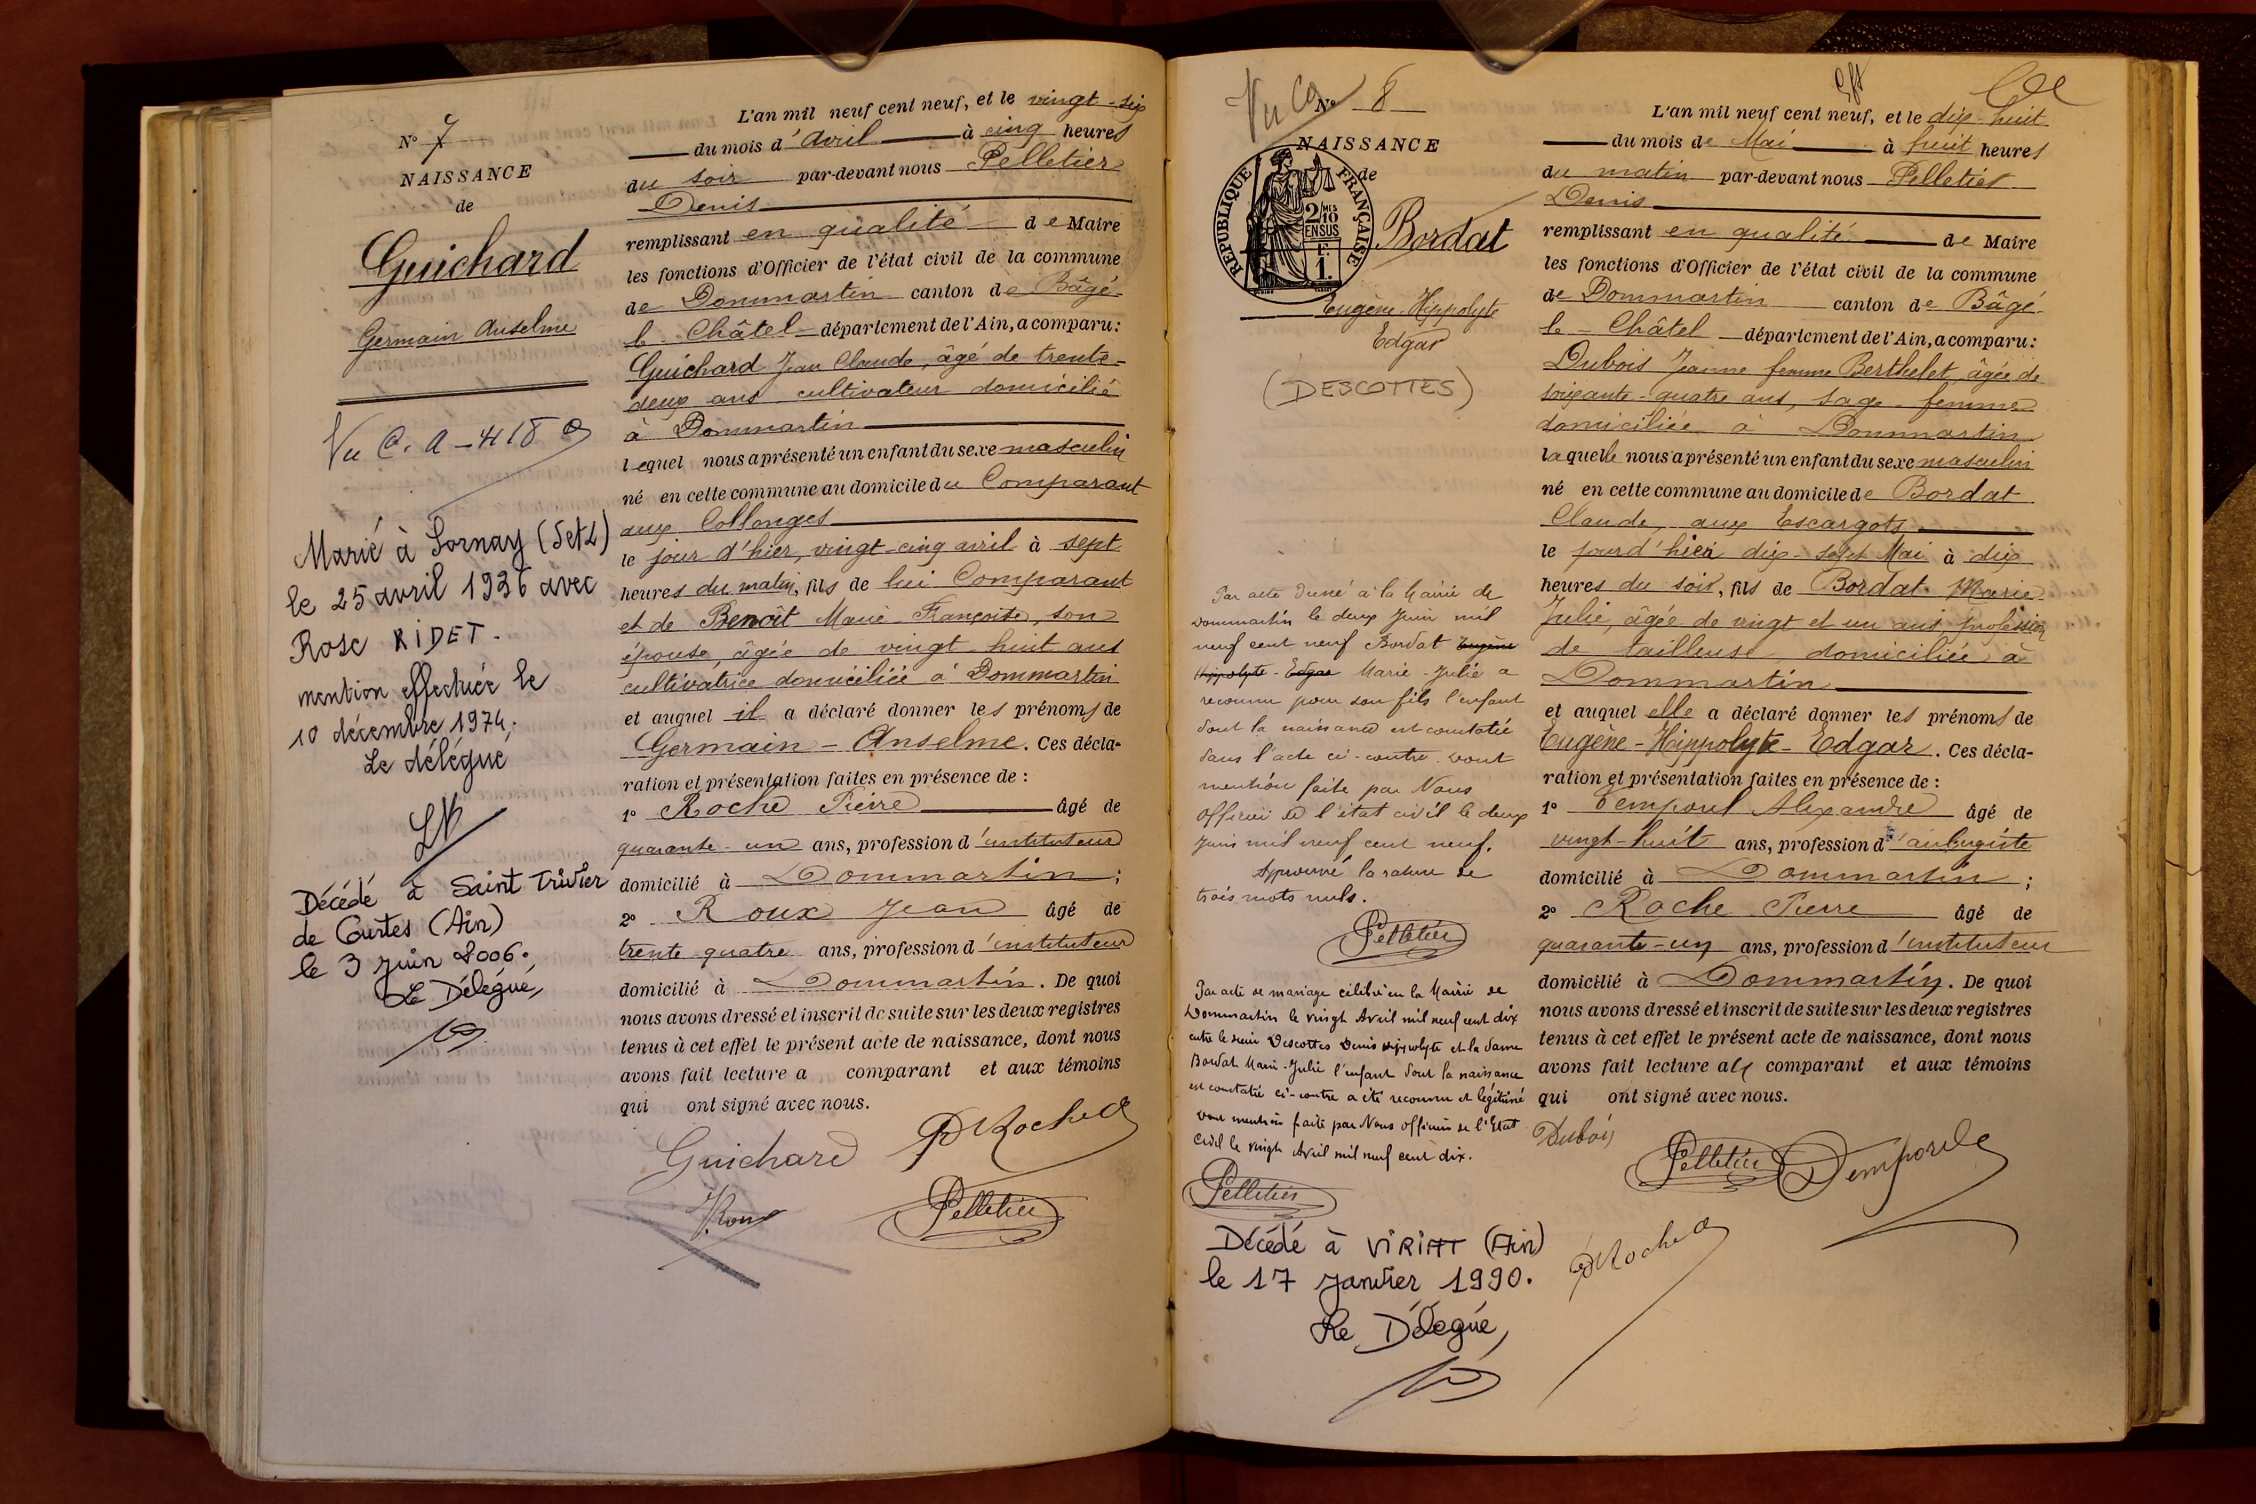 N° 7
NAISSANCE
de
Guichard
Germain Anselme
Vu C. A - 418
Marié à Sornay (S et L)
le 25 avril 1936 avec
Rose RIDET.
mention effectuée le
10 décembre 1974.
Le délégué
Décédé à Saint Trivier
de Courtes (Ain)
le 3 Juin 2006.
Le Délégué,
L'an mil neuf cent neuf, et le vingt-six
du mois d'Avril à cinq heures
du soir par-devant nous Pelletier
Denis
remplissant en qualité de Maire
les fonctions d'Officier de l'état civil de la commune
de Dommartin canton de Bâgé
le Châtel département de l'Ain, a comparu :
Guichard Jean Claude, âgé de trente-
deux ans cultivateur domicilié
à Dommartin
lequel nous a présenté un enfant du sexe masculin
né en cette commune au domicile du Comparant
aux Collonges
le jour d'hier, vingt-cinq avril à sept
heures du matin, fils de lui Comparant
et de Benoît Marie Françoise, son
épouse, âgée de vingt-huit ans
cultivatrice domiciliée à Dommartin
et auquel il a déclaré donner les prénoms de
Germain - Anselme. Ces décla-
ration et présentation faites en présence de :
1° Roche Pierre âgé de
quarante-un ans, profession d'instituteur
domicilié à Dommartin ;
2° Roux Jean âgé de
trente quatre ans, profession d'instituteur
domicilié à Dommartin. De quoi
nous avons dressé et inscrit de suite sur les deux registres
tenus à cet effet le présent acte de naissance, dont nous
avons fait lecture a comparant et aux témoins
qui ont signé avec nous.
Guichard P Roche
J. Roux Pelletier
Vu Ca
N° 8
NAISSANCE
de
RÉPUBLIQUE FRANÇAISE
2/10 MES
EN SUS
1 F.
Bordat
Eugène Hippolyte
Edgar
(DESCOTTES)
Par acte dressé à la Mairie de
Dommartin le deux Juin mil
neuf cent neuf Bordat Eugène
Hippolyte - Edgar Marie-Julie a
reconnu pour son fils l'enfant
dont la naissance est constatée
dans l'acte ci-contre. Dont
mention faite par Nous
Officier de l'état civil le deux
Juin mil neuf cent neuf.
Approuvé la rature de
trois mots nuls.
Pelletier
Par acte de mariage célébré en la Mairie de
Dommartin le vingt Avril mil neuf cent dix
entre le sieur Descottes Denis Hippolyte et la dame
Bordat Marie-Julie l'enfant dont la naissance
est constatée ci-contre a été reconnu et légitimé
Dont mention faite par Nous officier de l'Etat
Civil le vingt Avril mil neuf cent dix.
Pelletier
Décédé à VIRIAT (Ain)
le 17 Janvier 1990.
Le Délégué,
L'an mil neuf cent neuf, et le dix-huit
du mois de Mai à huit heures
du matin par-devant nous Pelletier
Denis
remplissant en qualité de Maire
les fonctions d'Officier de l'état civil de la commune
de Dommartin canton de Bâgé
le - Châtel département de l'Ain, a comparu :
Dubois Jeanne femme Berthelet, âgée de
soixante-quatre ans, sage-femme
domiciliée à Dommartin
laquelle nous a présenté un enfant du sexe masculin
né en cette commune au domicile de Bordat
Claude, aux Escargots
le jour d'hier dix-sept Mai à dix
heures du soir, fils de Bordat Marie
Julie, âgée de vingt et un ans profession
de tailleuse domiciliée à
Dommartin
et auquel elle a déclaré donner les prénoms de
Eugène - Hippolyte - Edgar. Ces décla-
ration et présentation faites en présence de :
1° Temporel Alexandre âgé de
vingt-huit ans, profession d'aubergiste
domicilié à Dommartin ;
2° Roche Pierre âgé de
quarante-un ans, profession d'instituteur
domicilié à Dommartin. De quoi
nous avons dressé et inscrit de suite sur les deux registres
tenus à cet effet le présent acte de naissance, dont nous
avons fait lecture aux comparant et aux témoins
qui ont signé avec nous.
Dubois Pelletier Temporel
P Roche